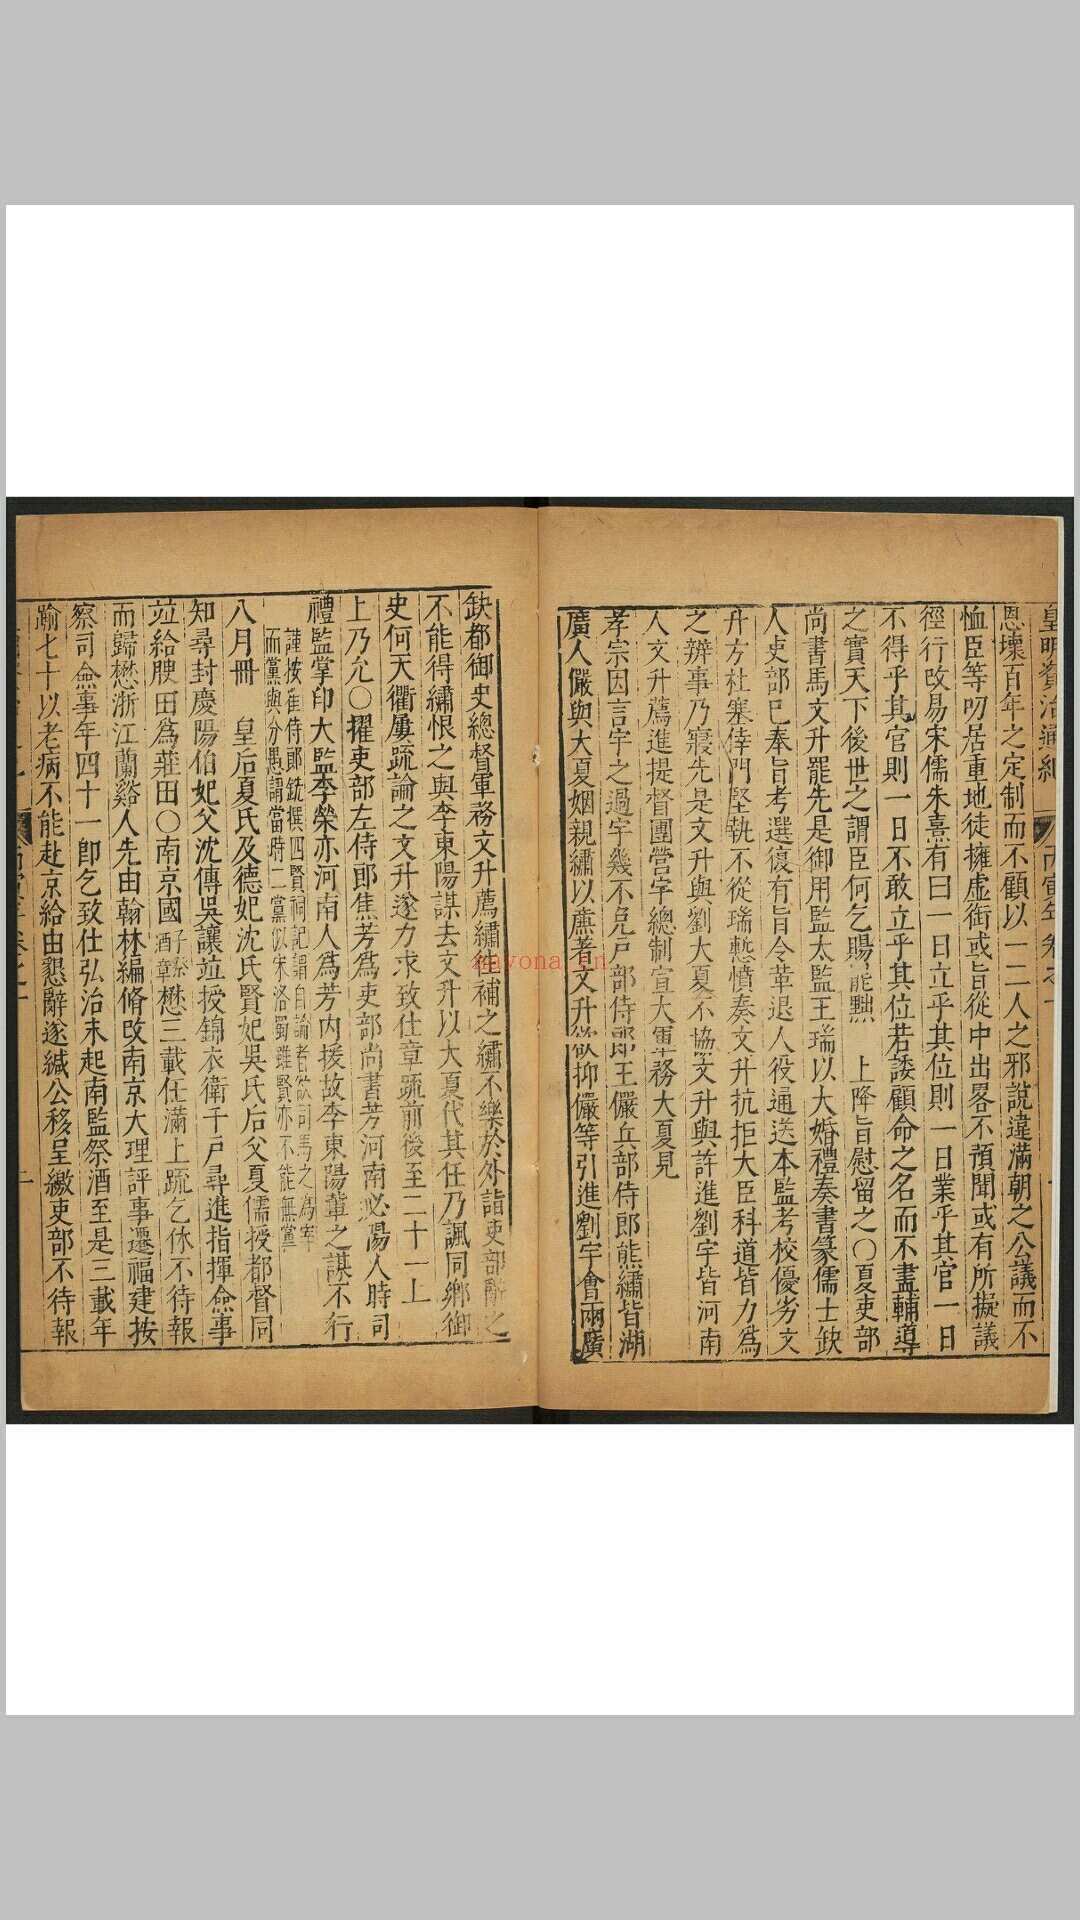 皇明資治通紀
恩壞百年之定制而不顧以一二人之邪說違滿朝之公議而不
恤臣等叨居重地徒擁虛銜或旨從中出畧不預聞或有所擬議
徑行改易宋儒朱熹有曰一日立乎其位則一日業乎其官一日
不得乎其官則一日不敢立乎其位若諉顧命之名而不盡輔導
之實天下後世之謂臣何乞賜罷黜 上降旨慰留之〇夏吏部
尚書馬文升罷先是御用監太監王瑞以大婚禮奏書篆儒士缺
人吏部巳奉旨考選復有旨令革退人役通送本監考校優劣文
升方杜塞倖門堅執不從瑞慙憤奏文升抗拒大臣科道皆力為
之辨事乃寢先是文升與劉大夏不協文升與許進劉宇皆河南
人文升薦進提督團營宇總制宣大軍務大夏見
孝宗因言宇之過宇幾不免戶部侍郎王儼兵部侍郎熊繡皆湖
廣人儼與大夏姻親繡以廉著文升欲抑儼等引進劉宇會兩廣
缺都御史總督軍務文升薦繡往補之繡不樂於外詣吏部辭之
不能得繡恨之與李東陽謀去文升以大夏代其任乃諷同鄉御
史何天衢屢疏論之文升遂力求致仕章疏前後至二十一上
上乃允〇擢吏部左侍郎焦芳爲吏部尚書芳河南泌陽人時司
禮監掌印大監李榮亦河南人爲芳內援故李東陽輩之謀不行
謹按崔侍郎銑撰四賢祠記謂自論者欲司馬之為宰
而黨與分愚謂當時二黨似宋洛蜀雖賢亦不能無黨
八月冊 皇后夏氏及德妃沈氏賢妃吳氏后父夏儒授都督同
知尋封慶陽伯妃父沈傳吳讓竝授錦衣衛千戶尋進指揮僉事
竝給腴田爲莊田〇南京國子祭酒章懋三載任滿上疏乞休不待報
而歸懋浙江蘭谿人先由翰林編脩改南京大理評事遷福建按
察司僉事年四十一卽乞致仕弘治末起南監祭酒至是三載年
踰七十以老病不能赴京給由懇辭遂緘公移呈繳吏部不待報